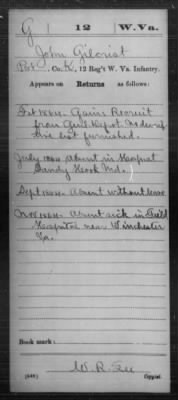 G 12 W.Va.
John Gilcrist
Pvt., Co. K, 12 Reg't W. Va. Infantry.
Appears on Returns as follows:
Feb 1864. Gain Recruit
from Genl. Depot. No descrip
tive list furnished.
July 1864 Absent in Hospital
Sandy Hook Md.
Sept 1864. Absent without leave
Nov 1864. Absent sick in Field
Hospital near Winchester
Va.
Book mark:
W. R.
(546) Copyist.